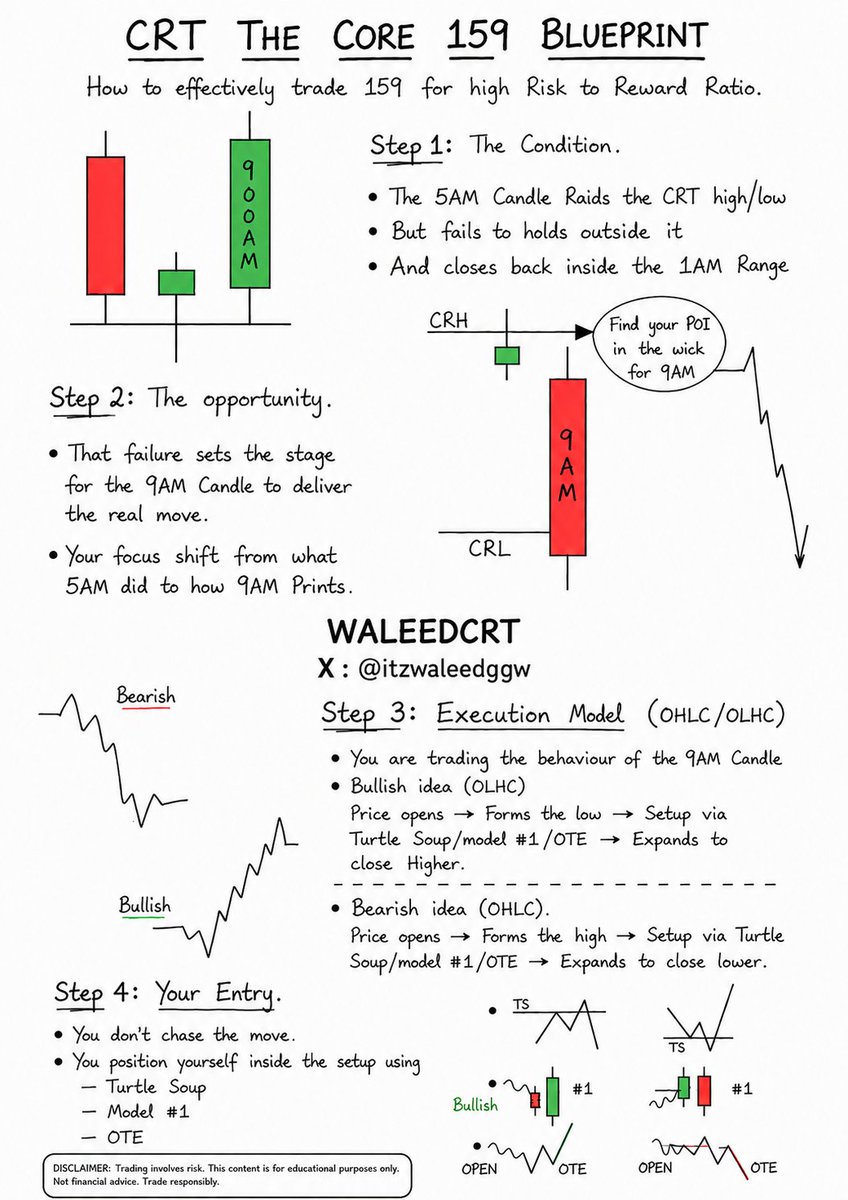 CRT THE CORE 159 BLUEPRINT
How to effectively trade 159 for high Risk to Reward Ratio.
900AM
Step 1: The Condition.
• The 5AM Candle Raids the CRT high/low
• But fails to holds outside it
• And closes back inside the 1AM Range
CRH
Find your POI
in the wick
for 9AM
9AM
CRL
Step 2: The opportunity.
• That failure sets the stage
for the 9AM Candle to deliver
the real move.
• Your focus shift from what
5AM did to how 9AM Prints.
WALEEDCRT
X : @itzwaleedggw
Bearish
Bullish
Step 3: Execution Model (OHLC/OLHC)
• You are trading the behaviour of the 9AM Candle
• Bullish idea (OLHC)
Price opens → Forms the low → Setup via
Turtle Soup/model #1/OTE → Expands to
close Higher.
• Bearish idea (OHLC).
Price opens → Forms the high → Setup via Turtle
Soup/model #1/OTE → Expands to close lower.
Step 4: Your Entry.
• You don't chase the move.
• You position yourself inside the setup using
— Turtle Soup
— Model #1
— OTE
TS
TS
#1
Bullish
#1
OPEN
OTE
OPEN
OTE
DISCLAIMER: Trading involves risk. This content is for educational purposes only.
Not financial advice. Trade responsibly.